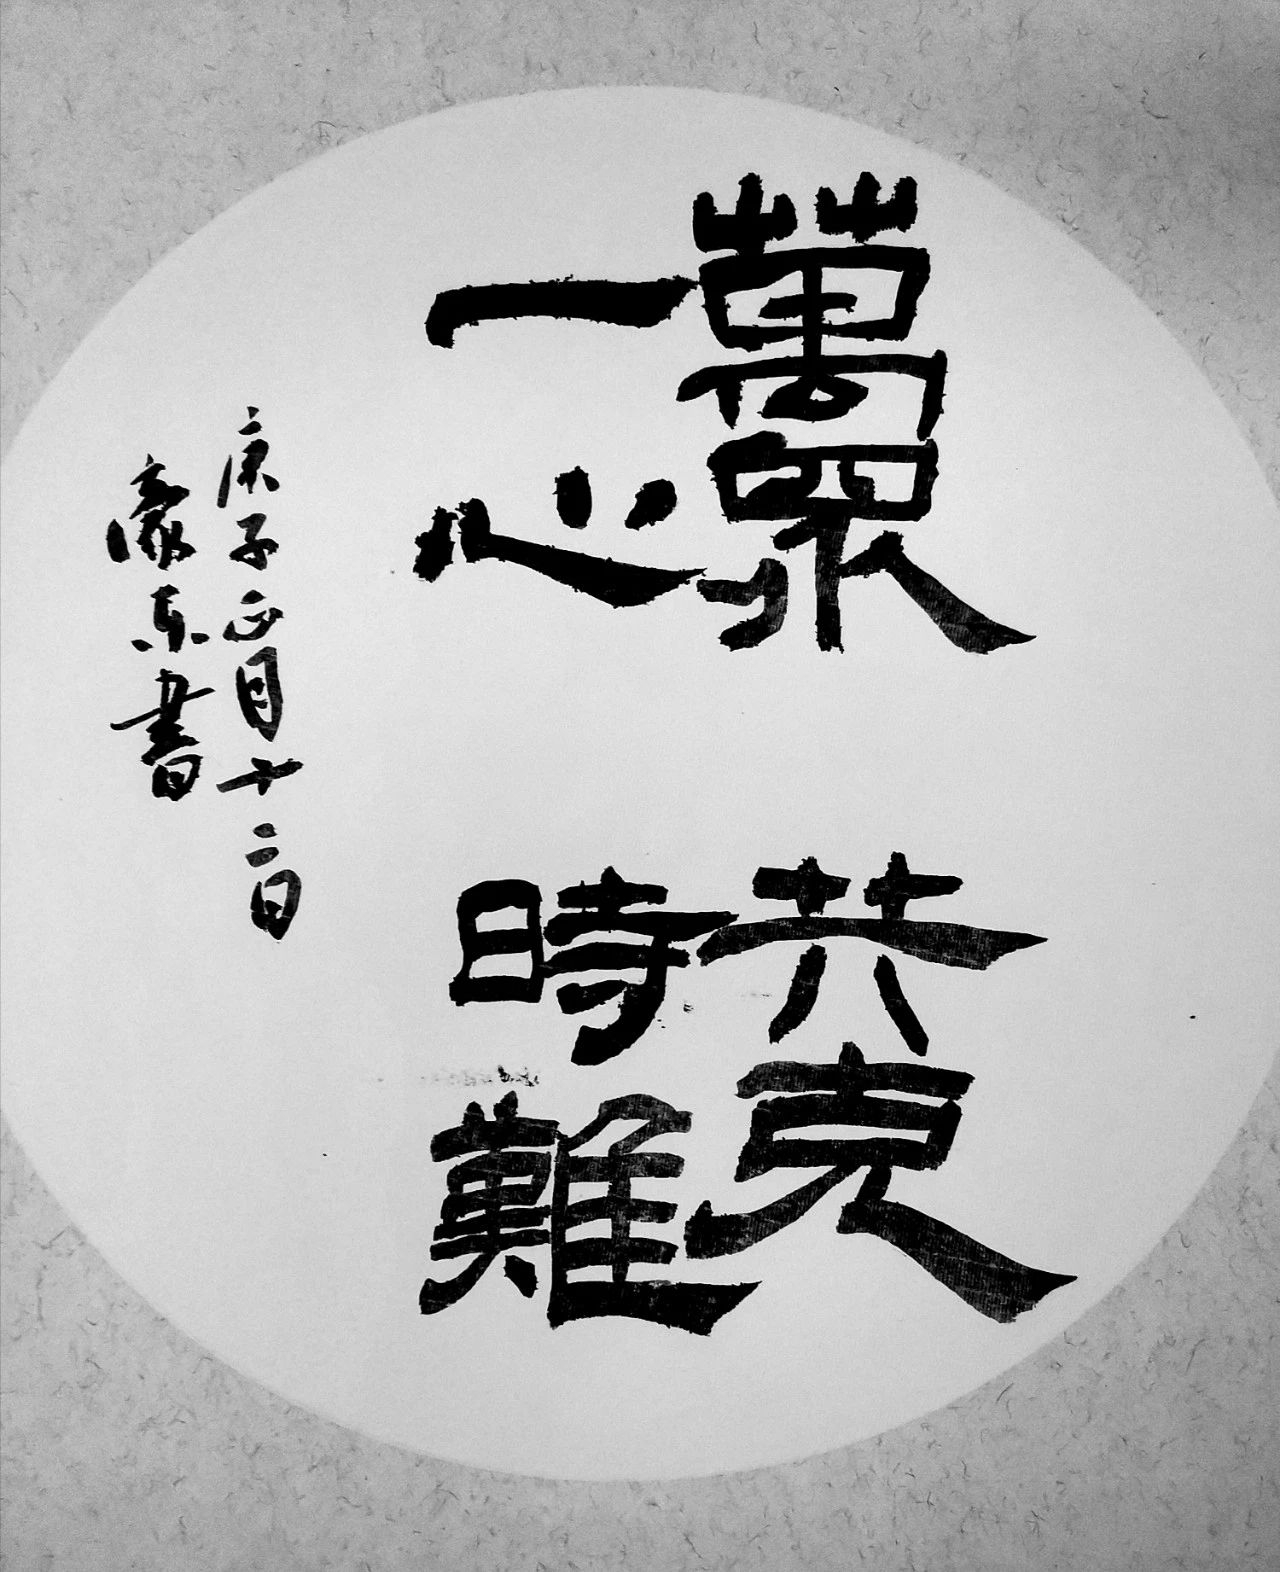 萬眾
一心
共克
時難
庚子正月十二日
东書